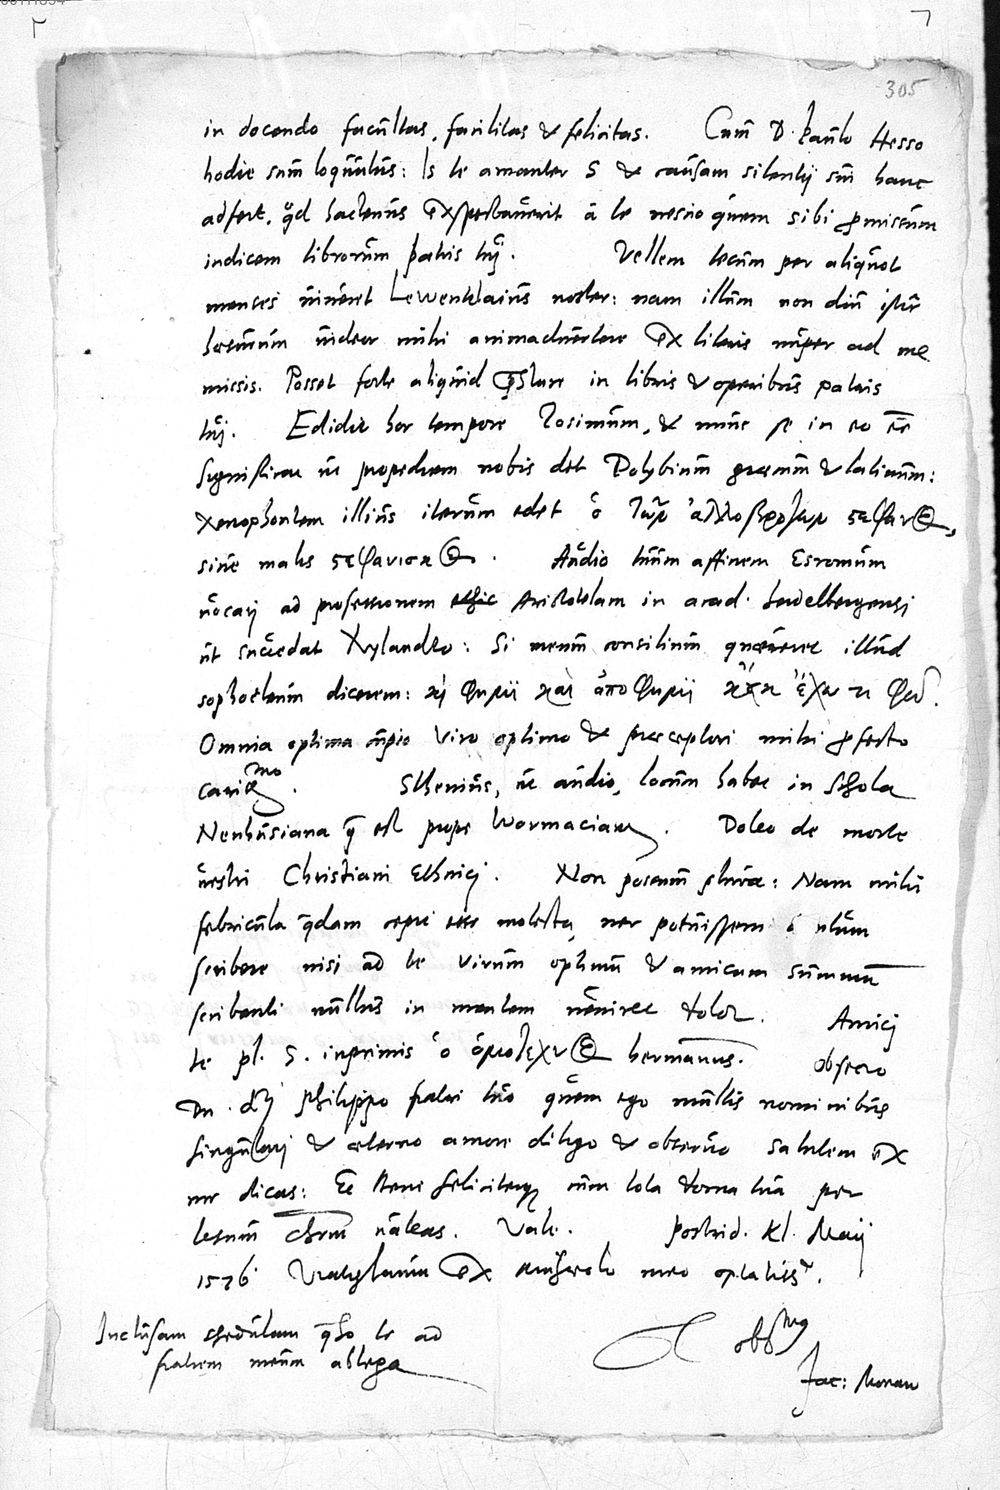 305
in docendo facultas, facilitas & felicitas. Cum D. Paulo Hesso
hodie sum loquutus: Is te amanter S & causam silentij sui hanc
adfert, qd hactenus exspectauerit à te nescio quem sibi promissum
indicem librorum patris tuj. Vellem tecum per aliquot
menses uiueret Lewenklaius noster: nam illum non diu istic
haesurum uideor mihi animaduertere ex literis nuper ad me
missis. Posset forte aliquid praestare in libris & operibus patris
tuj. Edidit hoc tempore Zosimum, & nunc se in eo eē
significat ut propediem nobis det Polybium graecum & latinum:
Xenophontem illius iterum edet ὁ
siue malis . Audio tuum affinem Esromum
uocarj ad professionem Aristotelam in acad. Heidelbergensj
ut succedat Xylandro: Si meum consilium quaereret illud
sophocleum dicerem:
Omnia optima cupio Viro optimo & praeceptori mihi profecto
cariss.mo Sthenius, ut audio, locum habet in Schola
Neuhusiana q est prope Wormaciam. Doleo de morte
uestri Christiani Ethnicj. Non possum plura: Nam mihi
febricula qdam cepit esse molesta, nec potuissem ullum
scribere nisi ad te virum optimū & amicum summum
scribenti nullus in mentem ueniret dolor. Amicj
te pl. S. inprimis ὁ ὁμότεχνος hermannus. obsecro
Dn. Philippo fratri tuo quem ego multis nominibus
singularj & aeterno amore diligo & obseruo salutem ex
me dicas: Et bene feliciterq cum tota domo tua per
Iesum chrm ualeas. Vale. Postrid. Kl. Maij
1576 Vratislauia ex musaeolo meo optatiss.
Inclusam schedulam qso te ad
fratrem meum ablega
T obs
Jac: Monau